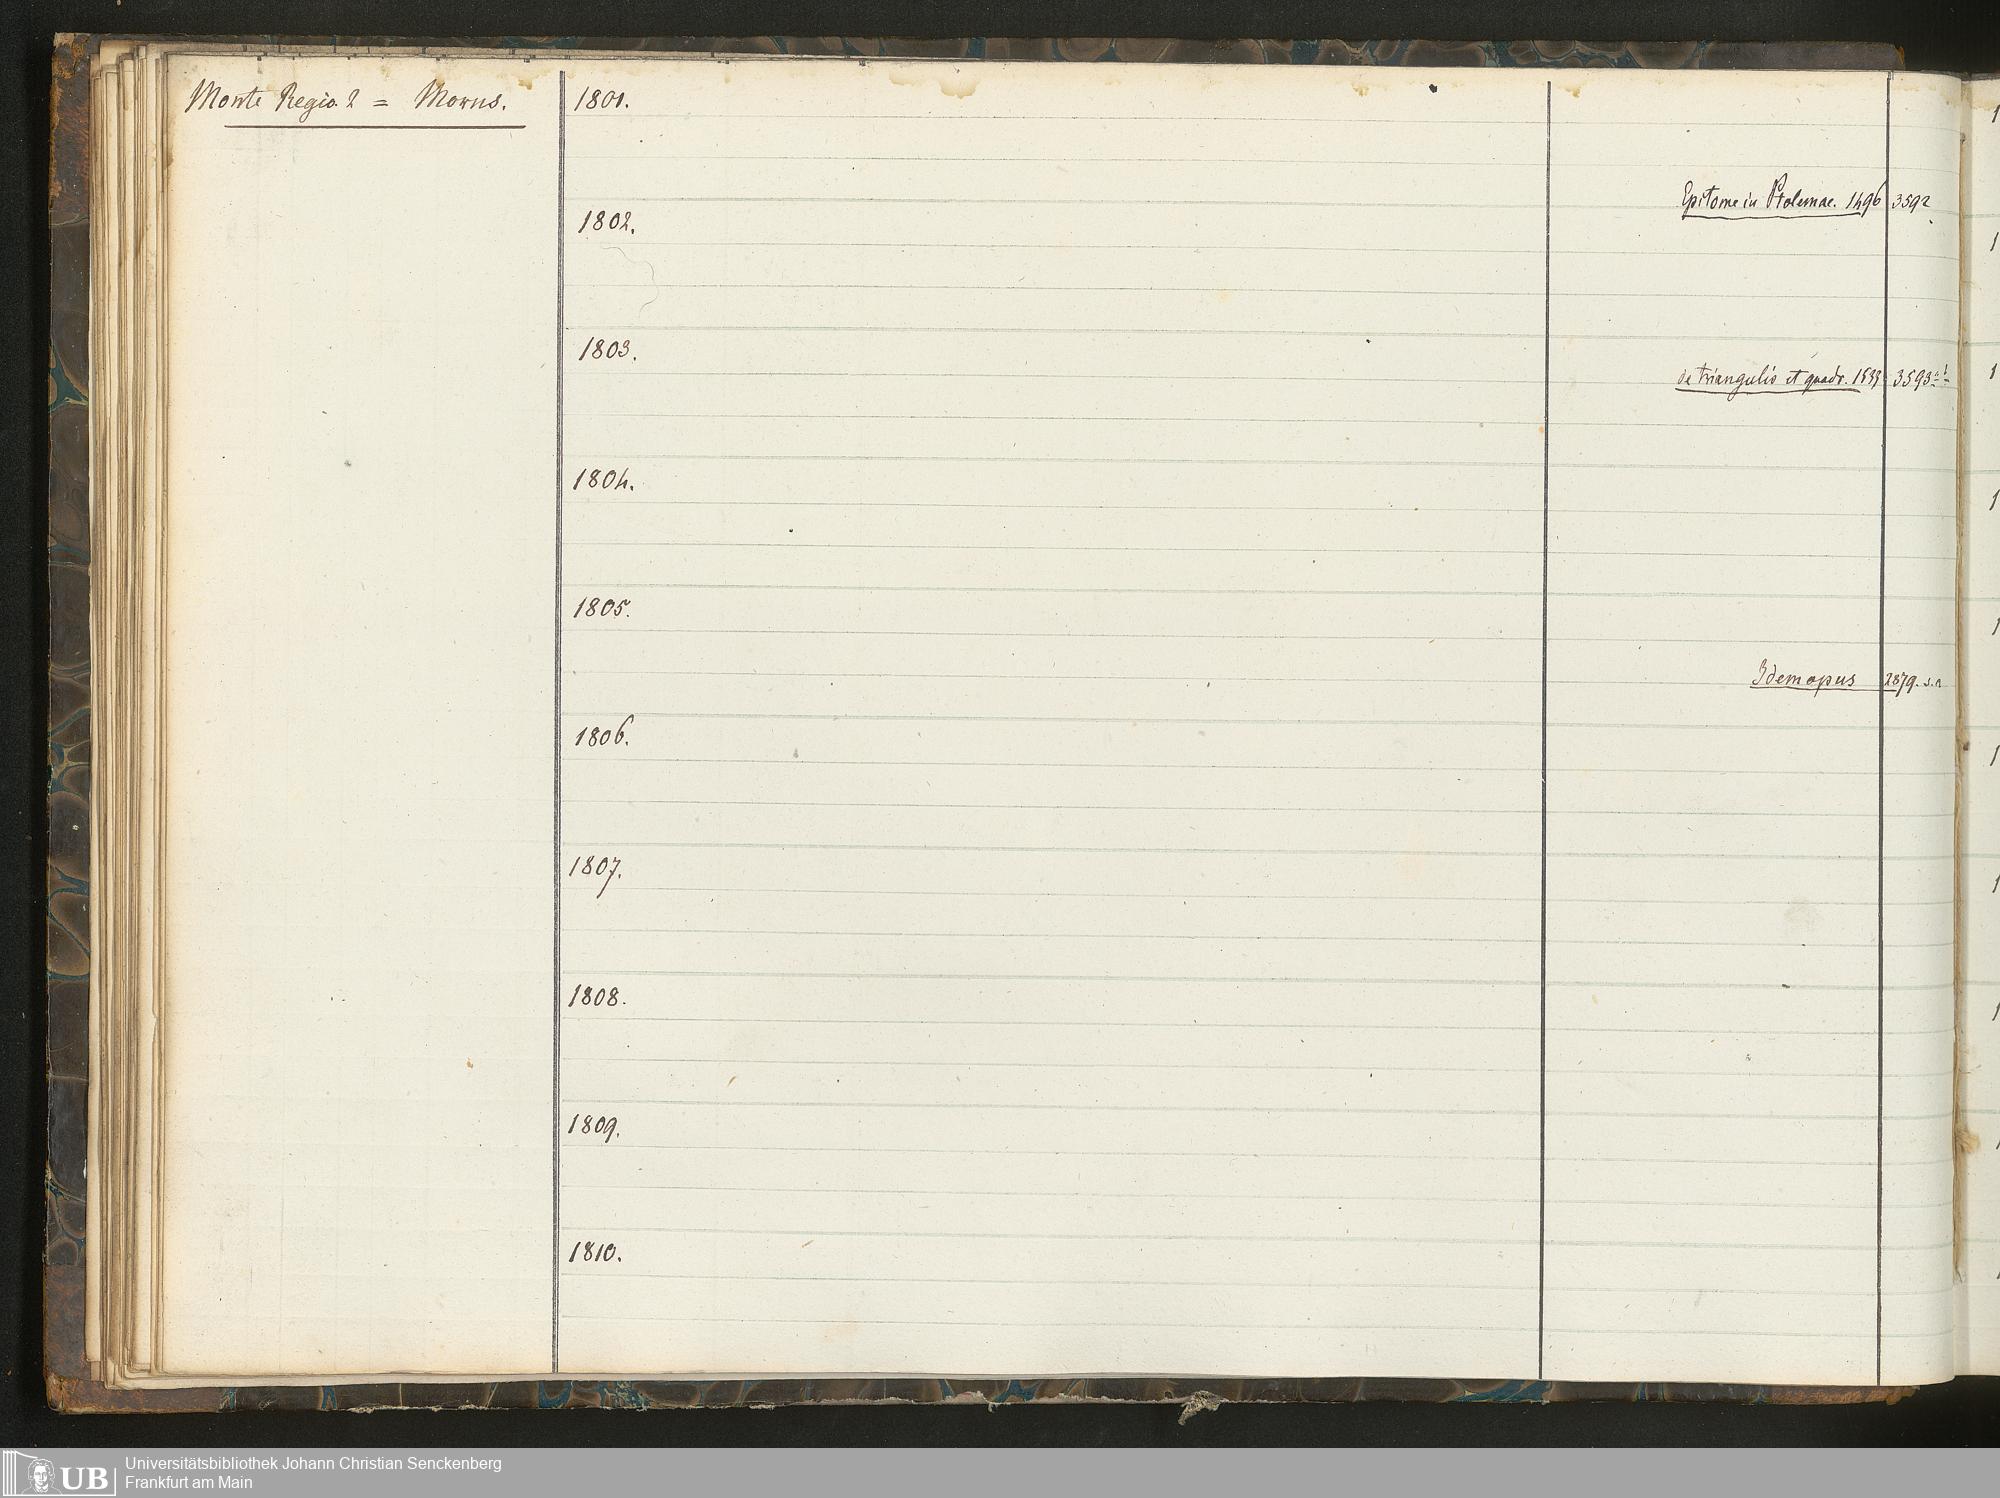 Monte Regio 2 = Morus.
1801.
Epitome in Ptolemae. 1496 3592
1802.
1803.
de triangulis et quadr. 1533 3593
1804.
1805.
Idem opus 2879.
1806.
1807.
1808.
1809.
1810.
UB
Universitätsbibliothek Johann Christian Senckenberg
Frankfurt am Main